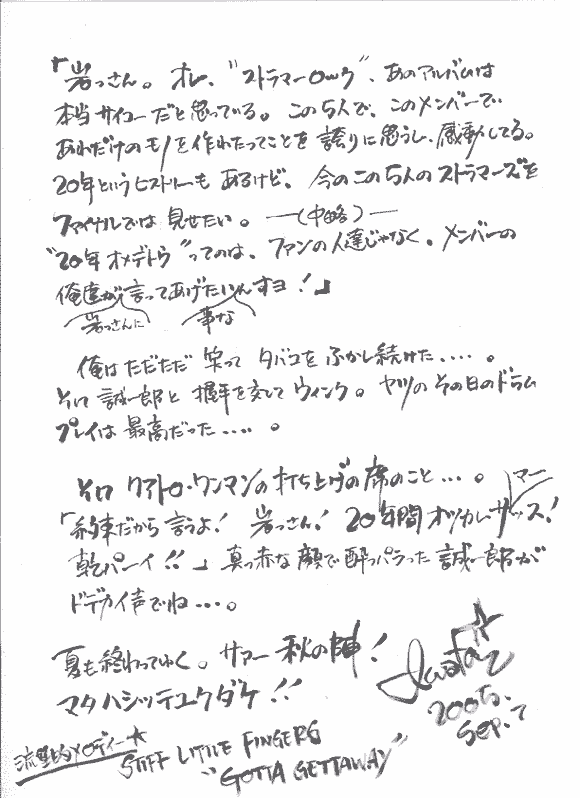 「岩っさん。オレ、“ストラマーロック”、あのアルバムは
本当サイコーだと思っている。この5人で、このメンバーで
あれだけのモノを作れたってことを誇りに思うし、感動してる。
20年というヒストリーもあるけど、今のこの5人のストラマーズを
ファイナルでは見せたい。―(中略)―
“20年オメデトウ”ってのは、ファンの人達じゃなく、メンバーの
俺達が言ってあげたいんすヨ!」
岩っさんに 事な
俺はただただ笑ってタバコをふかし続けた....。
そして誠一郎と握手を交してウィンク。ヤツのその日のドラム
プレイは最高だった....。
そしてクアトロ・ワンマンの打ち上げの席のこと...。
マー
「約束だから言うよ!岩っさん!20年間オツカレサッス!
乾パーイ!!」真っ赤な顔で酔っパラった誠一郎が
ドデカイ声でね...。
夏も終わってゆく。サァー秋の陣!
マタハシッテユクダケ!!
Iwata
2005.
SEP. 7
流星的メロディー★
STIFF LITTLE FINGERS
“GOTTA GETTAWAY”